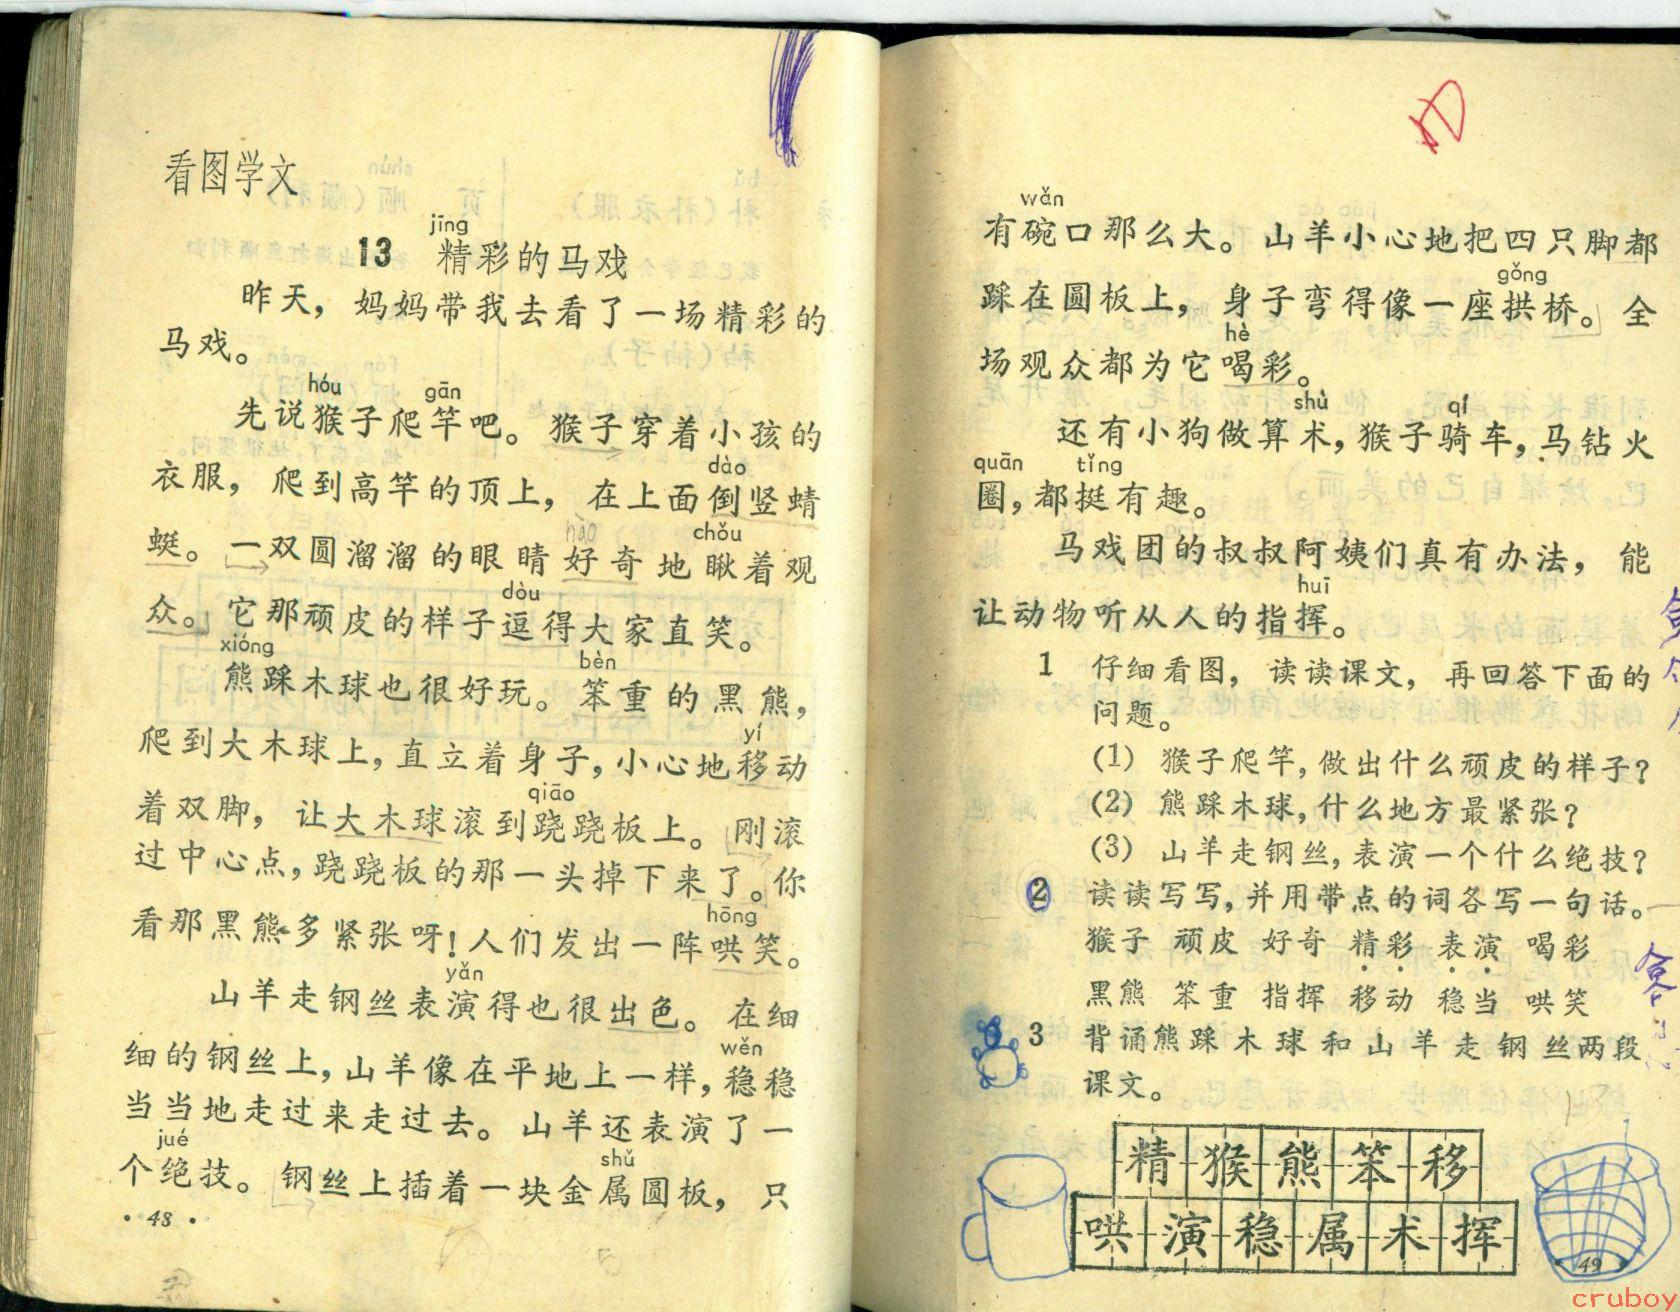 看图学文
jīng
13 精彩的马戏
昨天，妈妈带我去看了一场精彩的
马戏。
hóu gān
先说猴子爬竿吧。猴子穿着小孩的
dào
衣服，爬到高竿的顶上，在上面倒竖蜻
hào chǒu
蜓。一双圆溜溜的眼睛好奇地瞅着观
dòu
众。它那顽皮的样子逗得大家直笑。
xióng bèn
熊踩木球也很好玩。笨重的黑熊，
yí
爬到大木球上，直立着身子，小心地移动
qiāo
着双脚，让大木球滚到跷跷板上。刚滚
过中心点，跷跷板的那一头掉下来了。你
hōng
看那黑熊多紧张呀！人们发出一阵哄笑。
yǎn
山羊走钢丝表演得也很出色。在细
wěn
细的钢丝上，山羊像在平地上一样，稳稳
当当地走过来走过去。山羊还表演了一
jué shǔ
个绝技。钢丝上插着一块金属圆板，只
·48·
wǎn
有碗口那么大。山羊小心地把四只脚都
gǒng
踩在圆板上，身子弯得像一座拱桥。全
hè
场观众都为它喝彩。
shù qí
还有小狗做算术，猴子骑车，马钻火
quān tǐng
圈，都挺有趣。
马戏团的叔叔阿姨们真有办法，能
huī
让动物听从人的指挥。
1 仔细看图，读读课文，再回答下面的
问题。
(1) 猴子爬竿，做出什么顽皮的样子？
(2) 熊踩木球，什么地方最紧张？
(3) 山羊走钢丝，表演一个什么绝技？
2 读读写写，并用带点的词各写一句话。
猴子 顽皮 好奇 精彩 表演 喝彩
黑熊 笨重 指挥 移动 稳当 哄笑
3 背诵熊踩木球和山羊走钢丝两段
课文。
精猴熊笨移
哄演稳属术挥
49
cruboy